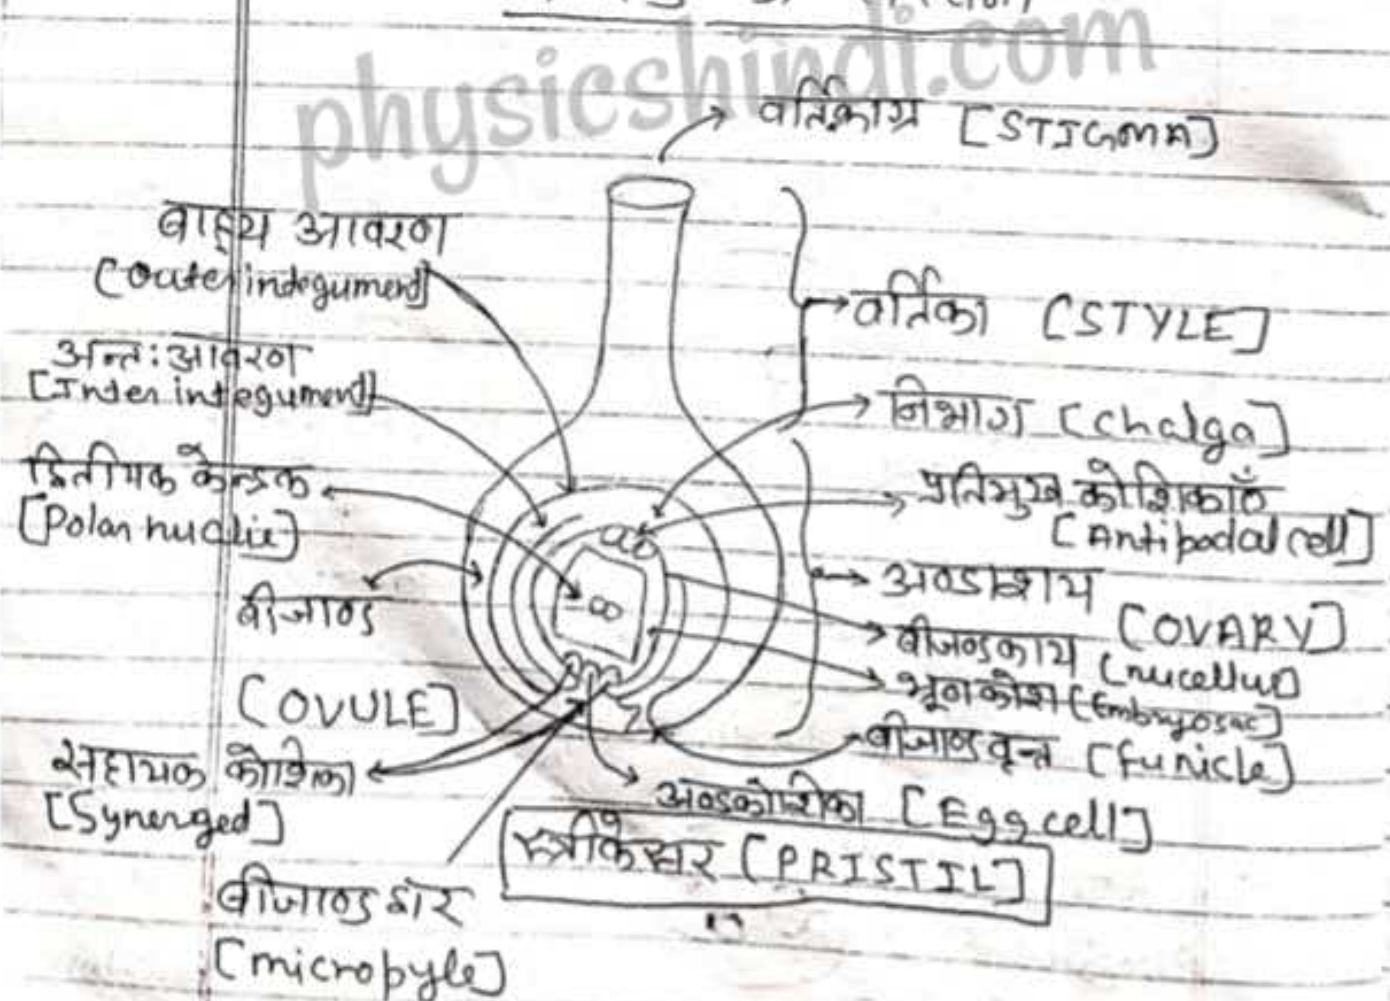 physicshindi.com
वर्तिकाग्र [STIGMA]
बाह्य आवरण
[Outer indegument]
वर्तिका [STYLE]
अन्तः आवरण
[Inter integument]
निभाग [Chalga]
द्वितीयक केन्द्रक
[Polar nuclie]
प्रतिमुख कोशिकाएँ
[Antipodal cell]
अण्डाशय
[OVARY]
बीजाण्ड
[OVULE]
बीजण्डकाय [nucellus]
भ्रूणकोश [Embryosac]
बीजाण्डवृन्त [funicle]
सहायक कोशिका
[Synerged]
अण्डकोशिका [Egg cell]
स्त्रीकेसर [PRISTIL]
बीजाण्डद्वार
[micropyle]